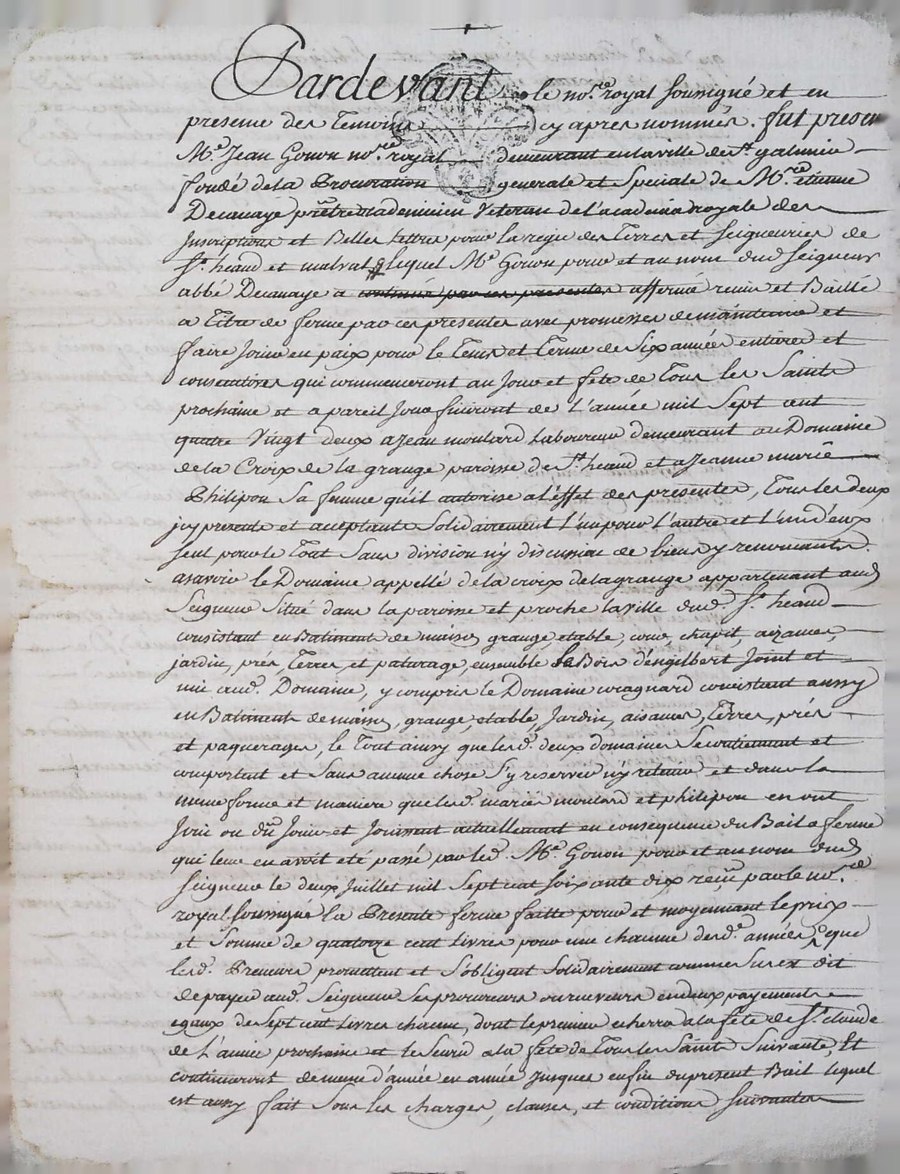 Pardevant le no.re royal soussigné et en
presence des Temoins cy apres nommés. fut present
M.e Jean Gonon no.re royal demeurant en la ville de S.t galmier
fondé de la Procuration generale et Speciale de M.re etienne
Decanaye prêtre academicien Veteran de l'academie royale des
Inscriptions et Belles Lettres pour la regie des Terres et Seigneuries de
S.t heand et malval lequel M.e Gonon pour et au nom dud Seigneur
abbé Decanaye a continué par ces presentes affermé remis et Baillé
a Titre de ferme par ces presentes avec promesses de maintenir et
faire Jouir en paix pour le Tems et Terme de Six années entieres et
consecutives qui commenceront au Jour et fête de Tous les Saints
prochaine et a pareil Jour finiront de l'année mil Sept cent
quatre Vingt deux a Jean moulard Laboureur demeurant au Domaine
de la Croix de la grange paroisse de S.t heand et a Jeanne marie
Philipon Sa femme qu'il autorise a l'effet des presentes, Tous les deux
icy presents et acceptants Solidairement l'un pour l'autre et l'un d'eux
seul pour le Tout Sans division n'y discussion de biens y renonceants
asavoir le Domaine appellé de la croix de la grange appartenant aud
Seigneur Situé dans la paroisse et proche la ville dud. S.t heand
consistant en Batiments de maison, grange, etable, cour, chapit, aizances,
jardin, prés, Terres, et paturage, ensemble le Bois d'engilbert Joint et
uni aud. Domaine, y compris le Domaine coragnard consistant aussy
en Batiments de maison, grange, etable, Jardin, aisances, Terres, prés
et paquerages, le Tout ainsy que lesd. deux domaines Se contiennent et
comportent et Sans aucune chose S'y reserver n'y retenir et dans la
meme forme et maniere que lesd. mariés moulard et philipon en ont
Joui ou dû Jouir et Jouissent actuellement en consequence du Bail a ferme
qui leur en avoit eté passé par led. M.e Gonon pour et au nom dud
Seigneur le deux Juillet mil Sept cent soixante dix reçu par le no.re
royal soussigné la Presente ferme faitte pour et moyennant le prix
et Somme de quatorze cent livres pour une chacune desd. années que
lesd. Preneurs promettent et S'obligent Solidairement comme Sus est dit
de payer aud. Seigneur Ses procureurs ou receveurs en deux payements
egaux de Sept cent livres chacun, dont le premier echerra a la fête de S.t claude
de l'année prochaine et le Second a la fête de Tous les Saints Suivante, Et
continueront de meme d'année en année Jusques en fin du present Bail lequel
est aussy fait Sous les charges, clauses, et conditions Suivantes